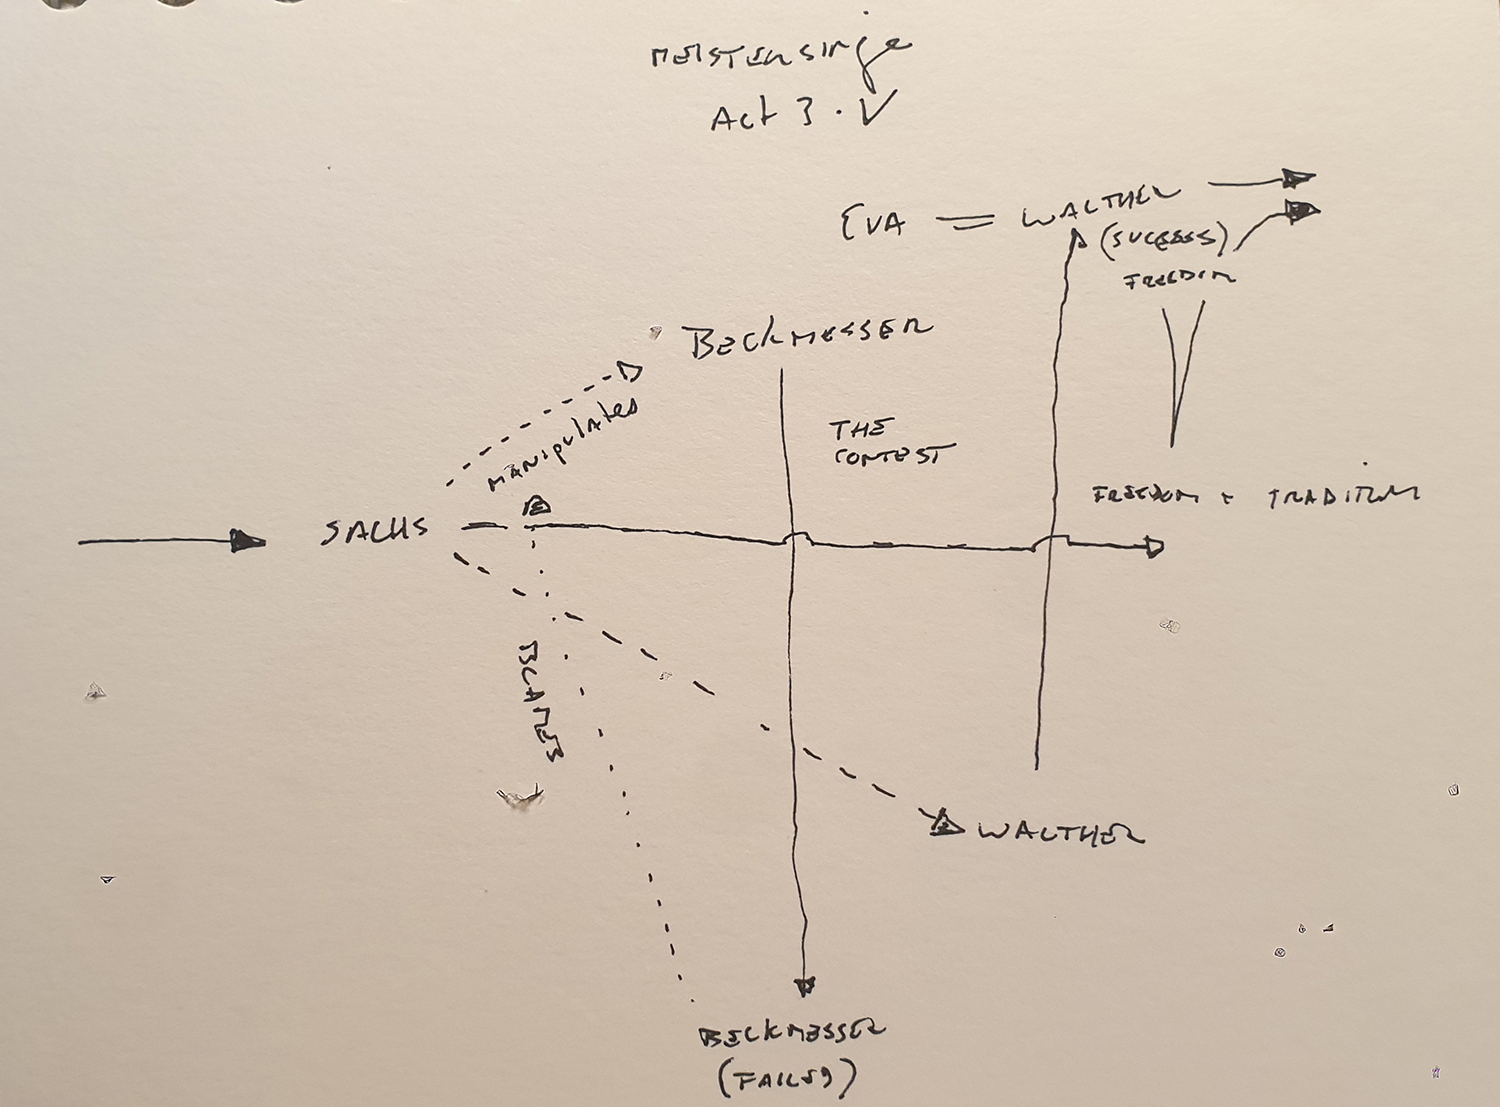 MEISTERSINGE
Act 3 . V
EVA = WALTHER
(SUCCESS)
FREEDOM
BECKMESSER
MANipulAtes
THE
CONTEST
FREEDOM + TRADITION
SACHS
BLAMES
WALTHER
BECKMESSER
(FAILS)